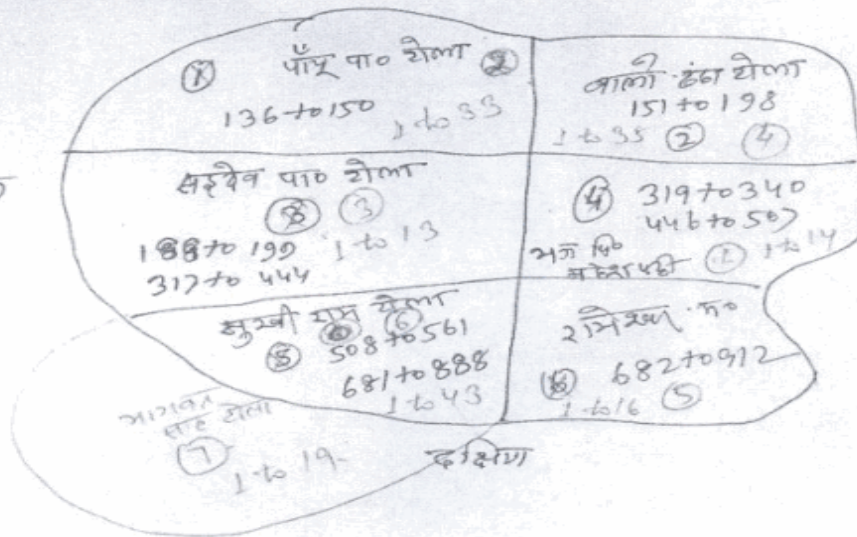 ① पाँचू पा० टोला ②
136 to 150
1 to 33
बाली टोला
151 to 198
1 to 35 ② ④
सहदेव पा० टोला
③
188 to 199
1 to 13
317 to 444
④ 319 to 340
446 to 507
1 to 14
सुखी राम टोला
⑥
⑤ 508 to 561
681 to 888
1 to 43
682 to 912
1 to 16 ⑤
भागवत
साह टोला
⑦
1 to 19
दक्षिण